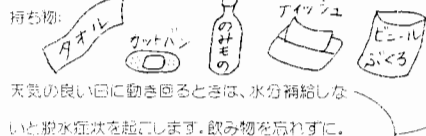 持ち物:
タオル
カットバン
のみもの
ティッシュ
ビニール
ぶくろ
天気の良い日に動き回るときは、水分補給しな
いと脱水症状を起こします。飲み物を忘れずに。